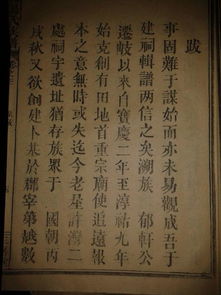 跋
事固難于謀始而亦未易觀成吾于
建祠輯譜兩信之矣溯族　郁軒公
遷岐以來自寶慶二年至淳祐九年
始克創有田地首重宗廟使追遠報
本之意無時或失迄今老屋許灣二
處祠宇遺址猶存族眾于　國朝丙
戌秋又欲創建卜基於郡宰第越數